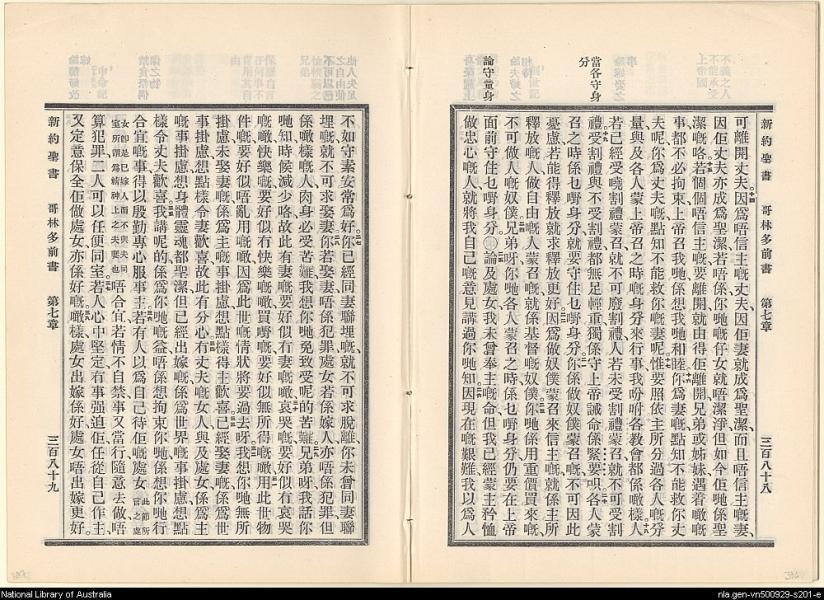 新約聖書 哥林多前書 第七章 三百八十八
可離開丈夫因為唔信主嘅丈夫因佢妻就成為聖潔而且唔信主嘅妻
因佢丈夫亦成為聖潔若唔係你哋嘅仔女就唔潔淨但如今佢哋係聖
潔嘅咯若個個唔信主嘅要離開就由得佢離開兄弟或姊妹遇着噉嘅
事都不必拘束上帝召我哋係想我哋和睦你為妻嘅點知不能救你丈
夫呢你為丈夫嘅點知不能救你妻呢惟要照依主所分過各人嘅分
量與及各人蒙上帝召之時嘅身分來行事我吩咐各教會都係噉樣人
若已經受曉割禮蒙召就不可廢割禮人若未受割禮蒙召就不可受割
禮受割禮與不受割禮都無足輕重獨係守上帝誡命係緊要呮各人蒙
召之時係乜嘢身分就要守住乜嘢身分你係做奴僕蒙召嘅不可因此
憂慮若能得釋放就求釋放更好因為做奴僕蒙召來信主嘅就係主所
釋放嘅人做自由嘅人蒙召嘅就係基督嘅奴僕你哋係用重價買來嘅
不可做人嘅奴僕兄弟呀你哋各人蒙召之時係乜嘢身分仍要在上帝
面前守住乜嘢身分〇論及處女我未曾奉主嘅命但我已經蒙主矜恤
做忠心嘅人就將我自己嘅意見講過你哋知因現在嘅艱難我以為人
當各守身分
論守童身
新約聖書 哥林多前書 第七章 三百八十九
不如守素安常為好你已經同妻聯埋嘅就不可求脫離你未曾同妻聯
埋嘅就不可求娶妻你若娶妻唔係犯罪處女若係嫁人亦唔係犯罪但
係噉樣嘅人肉身必受苦難我想你哋免致受呢的苦難兄弟呀我話你
哋知時候減少咯故此有妻嘅要好似有妻嘅噉哀哭嘅要好似冇哀哭
嘅噉快樂嘅要好似冇快樂嘅噉買嘢嘅要好似無所得嘅噉用此世物
件嘅要好似唔亂用嘅噉因為此世嘅情狀將要過去呀我想你哋無所
掛慮未娶妻嘅係為主嘅事掛慮想點樣得主歡喜已經娶妻嘅係為世
事掛慮想點樣令妻歡喜故此有分心有丈夫嘅女人與及處女係為主
嘅事掛慮想身體靈魂都聖潔但已經出嫁嘅係為世界嘅事掛慮想點
樣令丈夫歡喜我講呢的係為你哋嘅益唔係想拘束你哋係想你哋行
合宜嘅事得以殷勤專心服事主若有人以為自己待佢嘅處女
唔合宜若情不自禁事又當行隨意去做唔
算犯罪二人可以任便同室若人心中堅定有事強迫佢任從自己作主
又定意保全佢做處女亦係好嘅噉樣處女出嫁係好處女唔出嫁更好
National Library of Australia
nla.gen-vn500929-s201-e